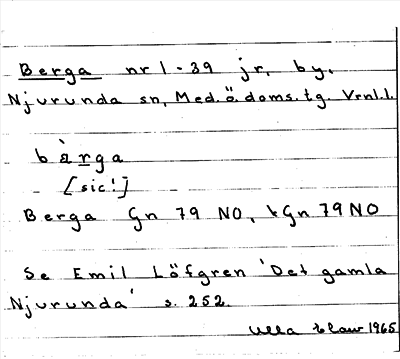 Berga nr 1-39 jr, by.
Njurunda sn, Med.ö.doms.tg. Vrnl.l.
bàrga
[sic!]
Berga Gn 79 NO, kGn 79 NO
Se Emil Löfgren 'Det gamla
Njurunda' s. 252.
Ulla 1965